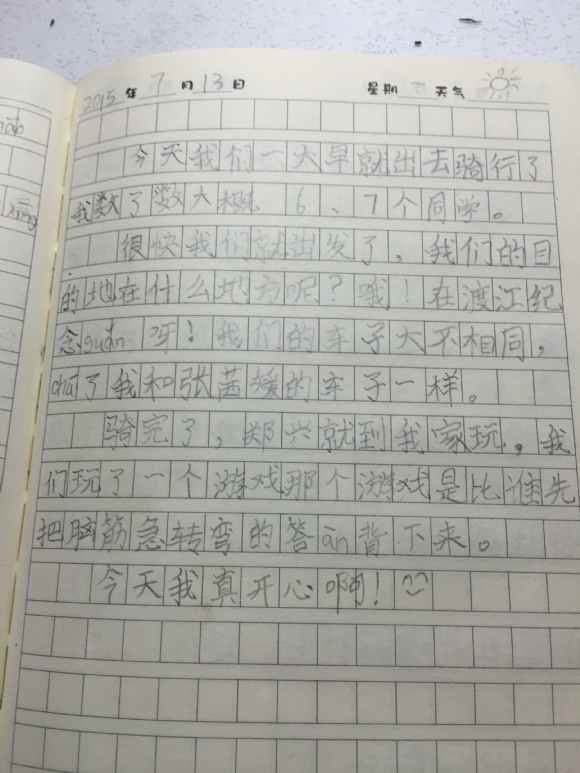 2015年7月13日 星期一 天气
今天我们一大早就出去骑行了
我数了数大概 6、7个同学。
很快我们就出发了,我们的目
的地在什么地方呢?哦!在渡江纪
念guǎn呀!我们的车子大不相同,
chú了我和张茜媛的车子一样。
骑完了,郑兴就到我家玩,我
们玩了一个游戏那个游戏是比谁先
把脑筋急转弯的答àn背下来。
今天我真开心啊!